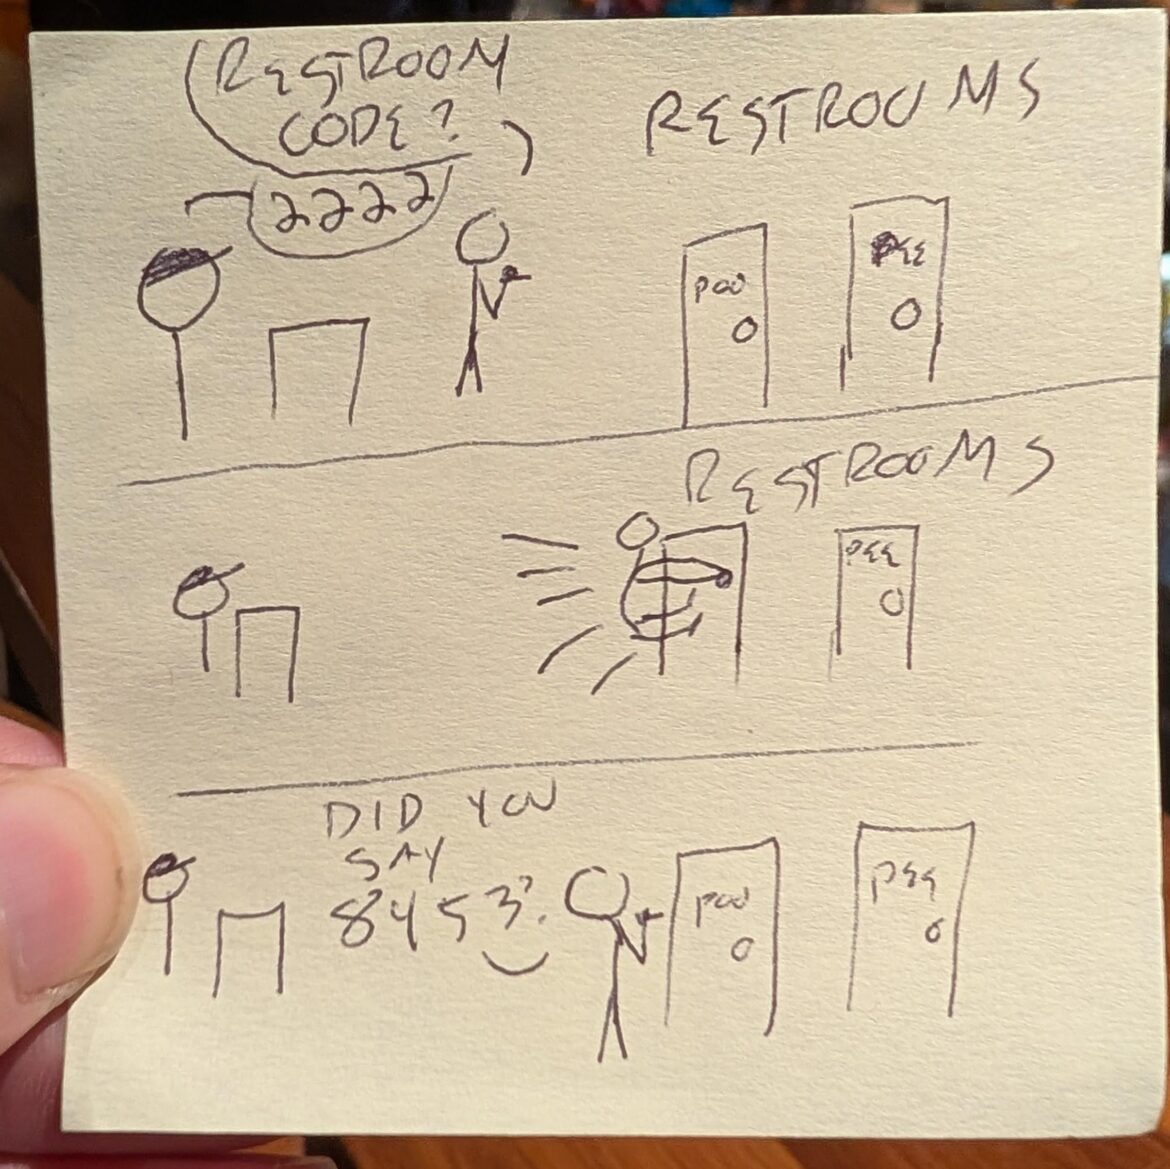 RESTROOM
CODE?
2222
RESTROOMS
POO
PEE
RESTROOMS
PEE
DID YOU
SAY
8453?
POO
PEE